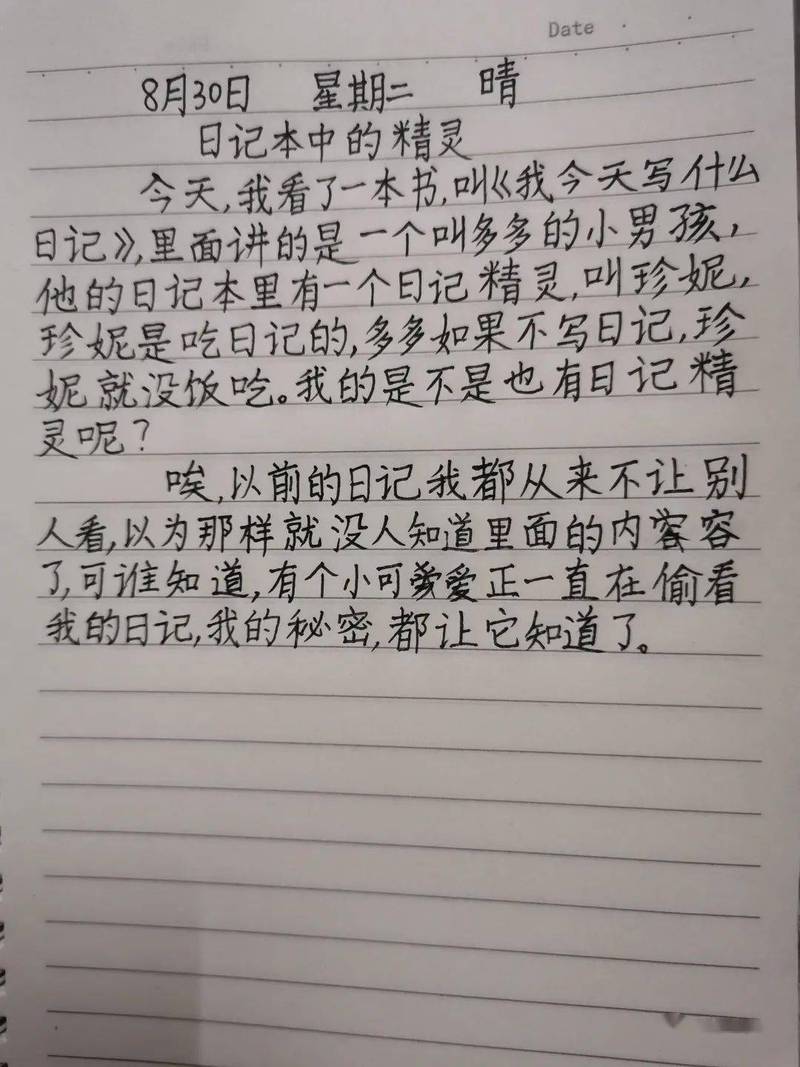 Date
8月30日 星期二 晴
日记本中的精灵
今天,我看了一本书,叫《我今天写什么
日记》,里面讲的是一个叫多多的小男孩,
他的日记本里有一个日记精灵,叫珍妮,
珍妮是吃日记的,多多如果不写日记,珍
妮就没饭吃。我的是不是也有日记精
灵呢?
唉,以前的日记我都从来不让别
人看,以为那样就没人知道里面的内容
了,可谁知道,有个小可爱正一直在偷看
我的日记,我的秘密,都让它知道了。